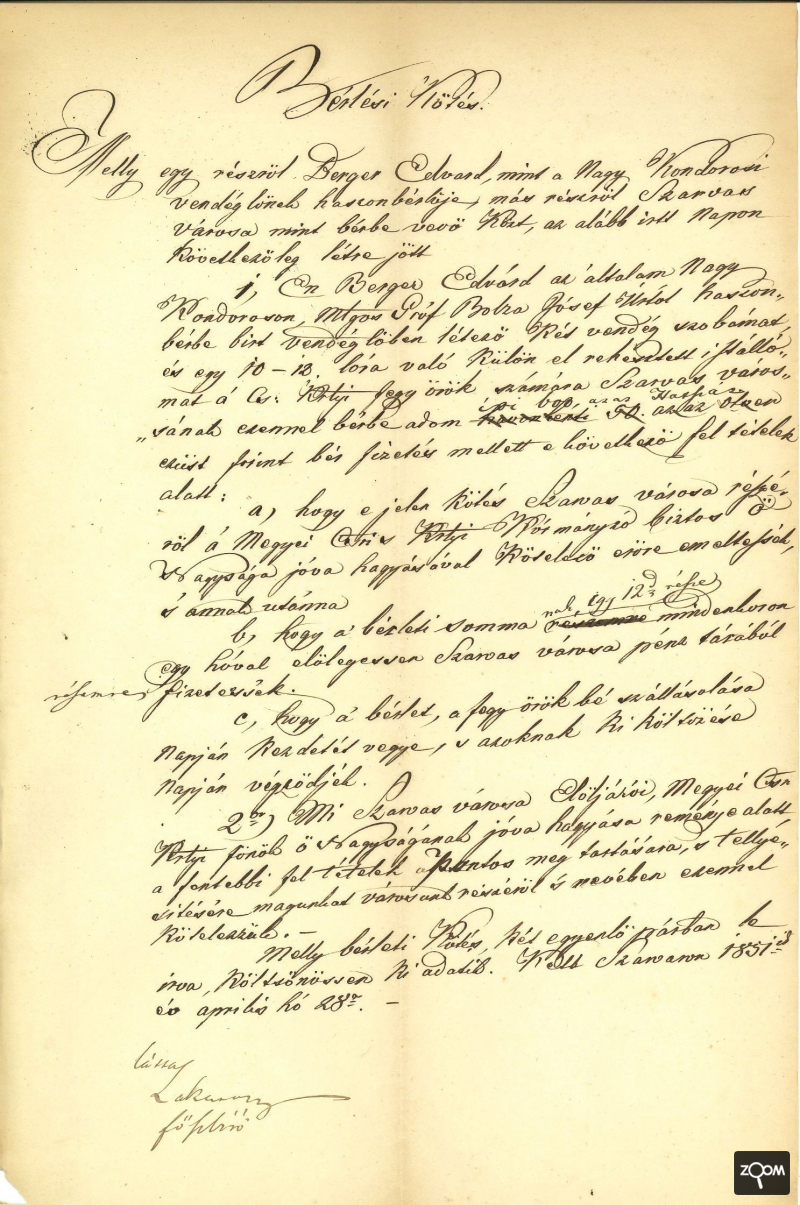 Bérlési Kötés.
Melly egy részröl Berger Edvard, mint a Nagy Kondorosi
vendéglönek haszonbérlöje, más részröl Szarvas
városa mint bérbe vevö közt, az alább irtt napon
következöleg létre jött
1, Én Berger Edvárd az általam Nagy
Kondoroson, Mtgos Gróf Bolza Jósef Úrtol haszon„
bérbe birt vendéglöben létezö két vendég szobámat,
és egy 10–12. lóra való külön el rekesztett istálló„
mat á Cs: Krlyi fegyörök számára Szarvas város„
azaz Hatvan
„sának ezennel bérbe adom 50. azaz ötven
ezüst forint bér fizetés mellett e következö fel tételek
alatt:
a, hogy e jelen kötés Szarvas városa részé„
röl á Megyei Cs: s Krlyi Kormányzó biztos Ö
Nagysága jóva hagyásával kötelezö eröre emeltessék,
s annak utánna
nak, egy 12d. része
b, hogy a bérleti somma részemre mindenkoron
egy hóval elölegessen Szarvas városa pénz tárából
részemre fizetessék.
c, hogy á bérlet, a fegyörök bé szállásolása
napján kezdetét vegye, s azoknak ki költözése
napján végzödjék.
2or) Mi Szarvas városa Elöljárói, Megyei Csr
Krlyi fönök ö Nagyságának jóva hagyása reménye alatt
a fentebbi fel tételek pontos meg tartására, s tellye„
sitésére magunkat városunk részéröl s nevében ezennel
kötelezzük. –
Melly bérleti Kötés, két egyenlö párban le
irva, költsönössen ki adatik. Kelt Szarvason 1851ik
év április hó 28n. –
látta
Lakatos
föszbiró
ZOOM